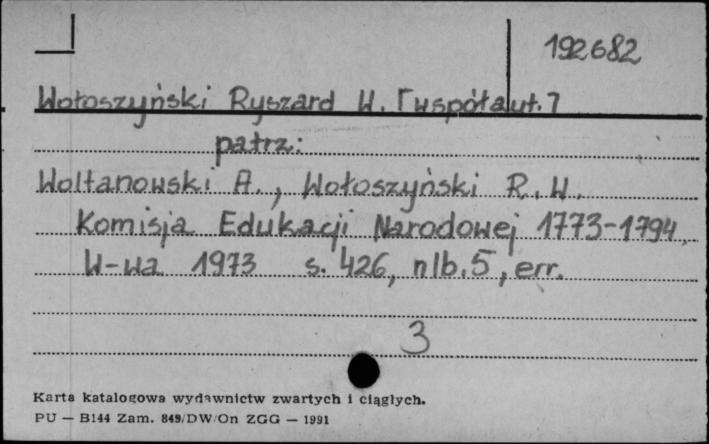 192682
Wołoszyński Ryszard W. [współaut.]
patrz:
Woltanowski A., Wołoszyński R. W.
Komisja Edukacji Narodowej 1773-1794.
W-wa 1973 s. 426, nlb. 5, err.
3
Karta katalogowa wydawnictw zwartych i ciągłych.
PU — B144 Zam. 849/DW/On ZGG — 1991